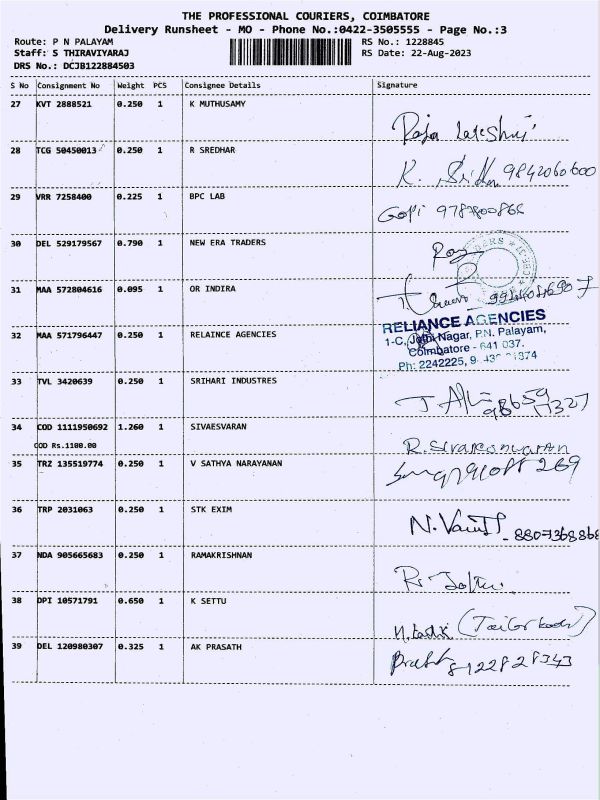 THE PROFESSIONAL COURIERS, COIMBATORE
Delivery Runsheet - MO - Phone No.:0422-3505555 - Page No.:3
Route: P N PALAYAM
RS No.: 1228845
Staff: S THIRAVIYARAJ
RS Date: 22-Aug-2023
DRS No.: DCJB122884503
S No Consignment No Weight PCS Consignee Details Signature
27 KVT 2888521 0.250 1 K MUTHUSAMY
28 TCG 50450013 0.250 1 R SREDHAR
K. Sridhar 9842060600
29 VRR 7258400 0.225 1 BPC LAB
Gopi
30 DEL 529179567 0.790 1 NEW ERA TRADERS
31 MAA 572804616 0.095 1 OR INDIRA
32 MAA 571796447 0.250 1 RELAINCE AGENCIES
RELIANCE AGENCIES
1-C, Jothi Nagar, P.N. Palayam,
Coimbatore - 641 037.
Ph: 2242225,
33 TVL 3420639 0.250 1 SRIHARI INDUSTRES
34 COD 1111950692 1.260 1 SIVAESVARAN
COD Rs.1100.00
R. Sivaesvaran
35 TRZ 135519774 0.250 1 V SATHYA NARAYANAN
36 TRP 2031063 0.250 1 STK EXIM
37 NDA 905665683 0.250 1 RAMAKRISHNAN
38 DPI 10571791 0.650 1 K SETTU
39 DEL 120980307 0.325 1 AK PRASATH
8122828343